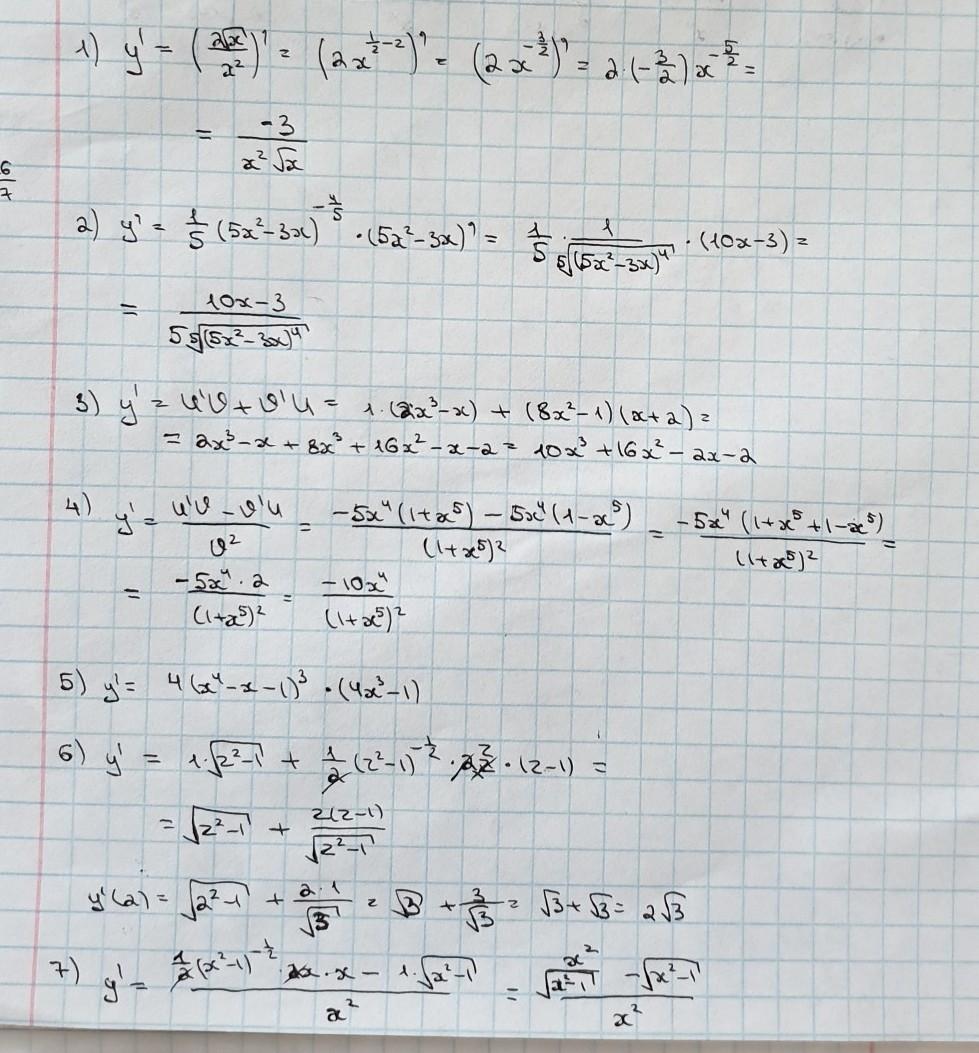 1) y' = (2√x/x²)' = (2x^(1/2-2))' = (2x^(-3/2))' = 2·(-3/2)x^(-5/2) =
= -3/(x²√x)
6/7
2) y' = 1/5 (5x²-3x)^(-4/5) · (5x²-3x)' = 1/5 · 1/⁵√((5x²-3x)⁴) · (10x-3) =
= (10x-3)/(5 ⁵√((5x²-3x)⁴))
3) y' = u'v + v'u = 1·(2x³-x) + (8x²-1)(x+2) =
= 2x³-x + 8x³ + 16x² - x - 2 = 10x³ + 16x² - 2x - 2
4) y' = (u'v - v'u)/v² = (-5x⁴(1+x⁵) - 5x⁴(1-x⁵))/(1+x⁵)² = (-5x⁴(1+x⁵+1-x⁵))/(1+x⁵)² =
= (-5x⁴·2)/(1+x⁵)² = -10x⁴/(1+x⁵)²
5) y' = 4(x⁴-x-1)³ · (4x³-1)
6) y' = 1·√(z²-1) + 1/2 (z²-1)^(-1/2) · 2z · (z-1) =
= √(z²-1) + z(z-1)/√(z²-1)
y'(2) = √(2²-1) + 2·1/√3 = √3 + 3/√3 = √3 + √3 = 2√3
7) y' = (1/2 (x²-1)^(-1/2) · 2x · x - 1·√(x²-1))/x² = (x²/√(x²-1) - √(x²-1))/x²